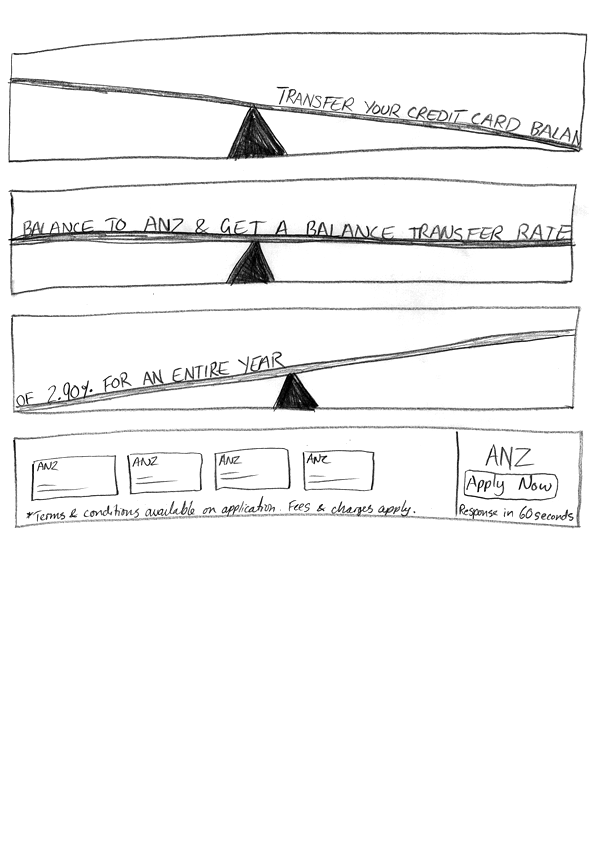 TRANSFER YOUR CREDIT CARD BALAN
BALANCE TO ANZ & GET A BALANCE TRANSFER RATE
OF 2.90% FOR AN ENTIRE YEAR
ANZ
ANZ
ANZ
ANZ
*Terms & conditions available on application. Fees & charges apply.
ANZ
Apply Now
Response in 60 seconds